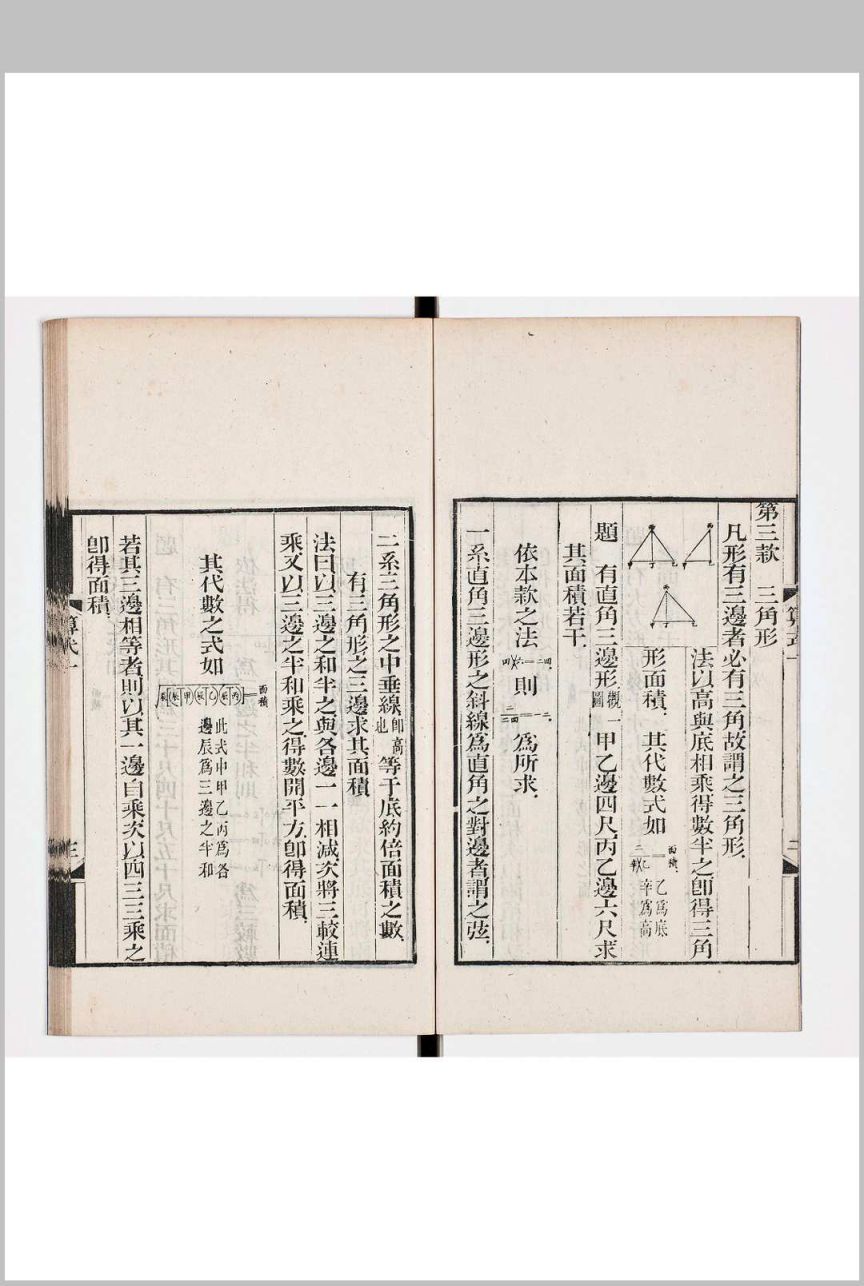 第三款　三角形
凡形有三邊者必有三角故謂之三角形
法以高與底相乘得數半之卽得三角
形面積　其代數式如
面積
二
乙爲底
辛爲高
題　有直角三邊形觀一圖甲乙邊四尺丙乙邊六尺求
其面積若干
依本款之法
則
爲所求
一系直角三邊形之斜線爲直角之對邊者謂之弦
算式一
二系三角形之中垂線卽高也等于底約倍面積之數
有三角形之三邊求其面積
法曰以三邊之和半之與各邊一一相減次將三較連
乘又以三邊之半和乘之得數開平方卽得面積
其代數之式如
面積
此式中甲乙丙爲各
邊辰爲三邊之半和
若其三邊相等者則以其一邊自乘次以四三三乘之
卽得面積
算式一
三